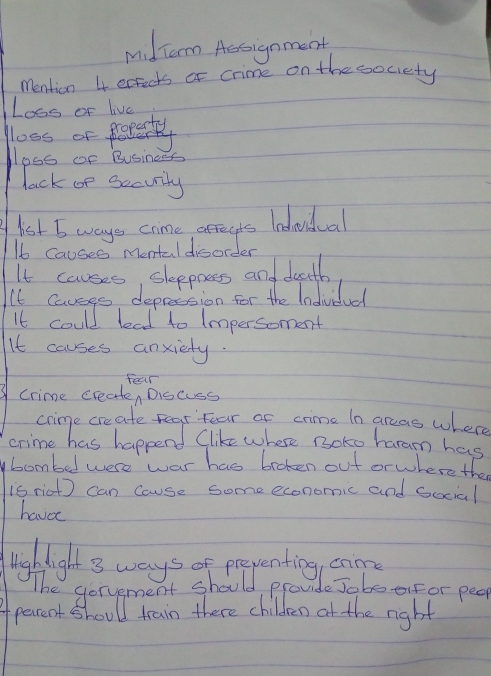 MidTerm Assignment
Mention 4 effects of crime on the society
Loss of live
loss of property
loss of Business
lack of Security
list 5 ways crime affects Individual
It causes Mental disorder
It causes sleppness and death
It causes depression for the Individud
It could lead to Impersoment
It causes anxiety.
3 crime create fear Discuss
crime create fear Fear of crime In areas where
crime has happend (like where Boko haram has
bombed were war has broken out or where ther
is riot) can cause some economic and social
havoc
Highlight 3 ways of preventing crime
The gorvement should provide Jobs for peop
parent should train there children at the right